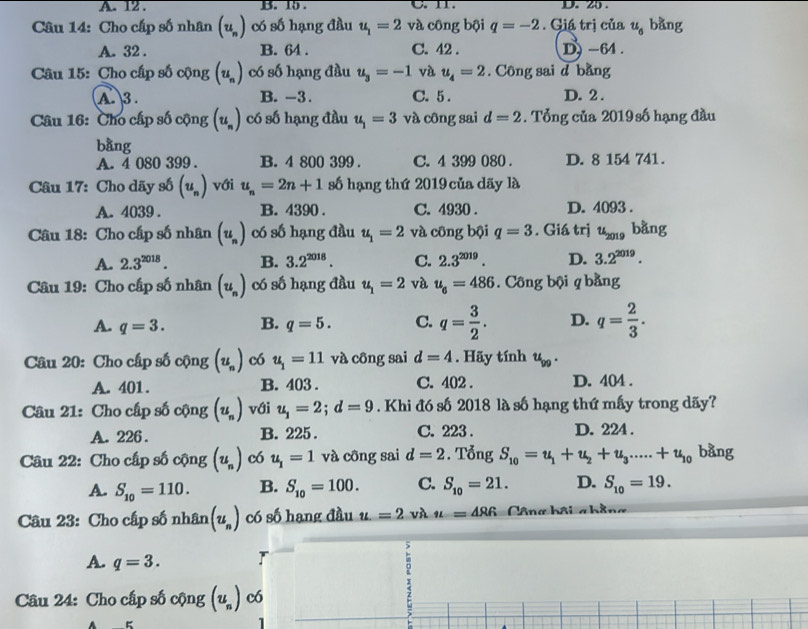 A. 12. B. 15. C. 11. D. 25.
Câu 14: Cho cấp số nhân (uₙ) có số hạng đầu u₁ = 2 và công bội q = −2. Giá trị của u₆ bằng
A. 32. B. 64. C. 42. D. −64.
Câu 15: Cho cấp số cộng (uₙ) có số hạng đầu u₃ = −1 và u₄ = 2. Công sai d bằng
A. 3. B. −3. C. 5. D. 2.
Câu 16: Cho cấp số cộng (uₙ) có số hạng đầu u₁ = 3 và công sai d = 2. Tổng của 2019 số hạng đầu
bằng
A. 4 080 399. B. 4 800 399. C. 4 399 080. D. 8 154 741.
Câu 17: Cho dãy số (uₙ) với uₙ = 2n + 1 số hạng thứ 2019 của dãy là
A. 4039. B. 4390. C. 4930. D. 4093.
Câu 18: Cho cấp số nhân (uₙ) có số hạng đầu u₁ = 2 và công bội q = 3. Giá trị u₂₀₁₉ bằng
A. 2.3²⁰¹⁸. B. 3.2²⁰¹⁸. C. 2.3²⁰¹⁹. D. 3.2²⁰¹⁹.
Câu 19: Cho cấp số nhân (uₙ) có số hạng đầu u₁ = 2 và u₆ = 486. Công bội q bằng
A. q = 3. B. q = 5. C. q = 3/2. D. q = 2/3.
Câu 20: Cho cấp số cộng (uₙ) có u₁ = 11 và công sai d = 4. Hãy tính u₉₉.
A. 401. B. 403. C. 402. D. 404.
Câu 21: Cho cấp số cộng (uₙ) với u₁ = 2; d = 9. Khi đó số 2018 là số hạng thứ mấy trong dãy?
A. 226. B. 225. C. 223. D. 224.
Câu 22: Cho cấp số cộng (uₙ) có u₁ = 1 và công sai d = 2. Tổng S₁₀ = u₁ + u₂ + u₃..... + u₁₀ bằng
A. S₁₀ = 110. B. S₁₀ = 100. C. S₁₀ = 21. D. S₁₀ = 19.
Câu 23: Cho cấp số nhân (uₙ) có số hạng đầu u = 2 và u = 486. Công bội q bằng
A. q = 3.
Câu 24: Cho cấp số cộng (uₙ) có
ST VIETNAM POST VI